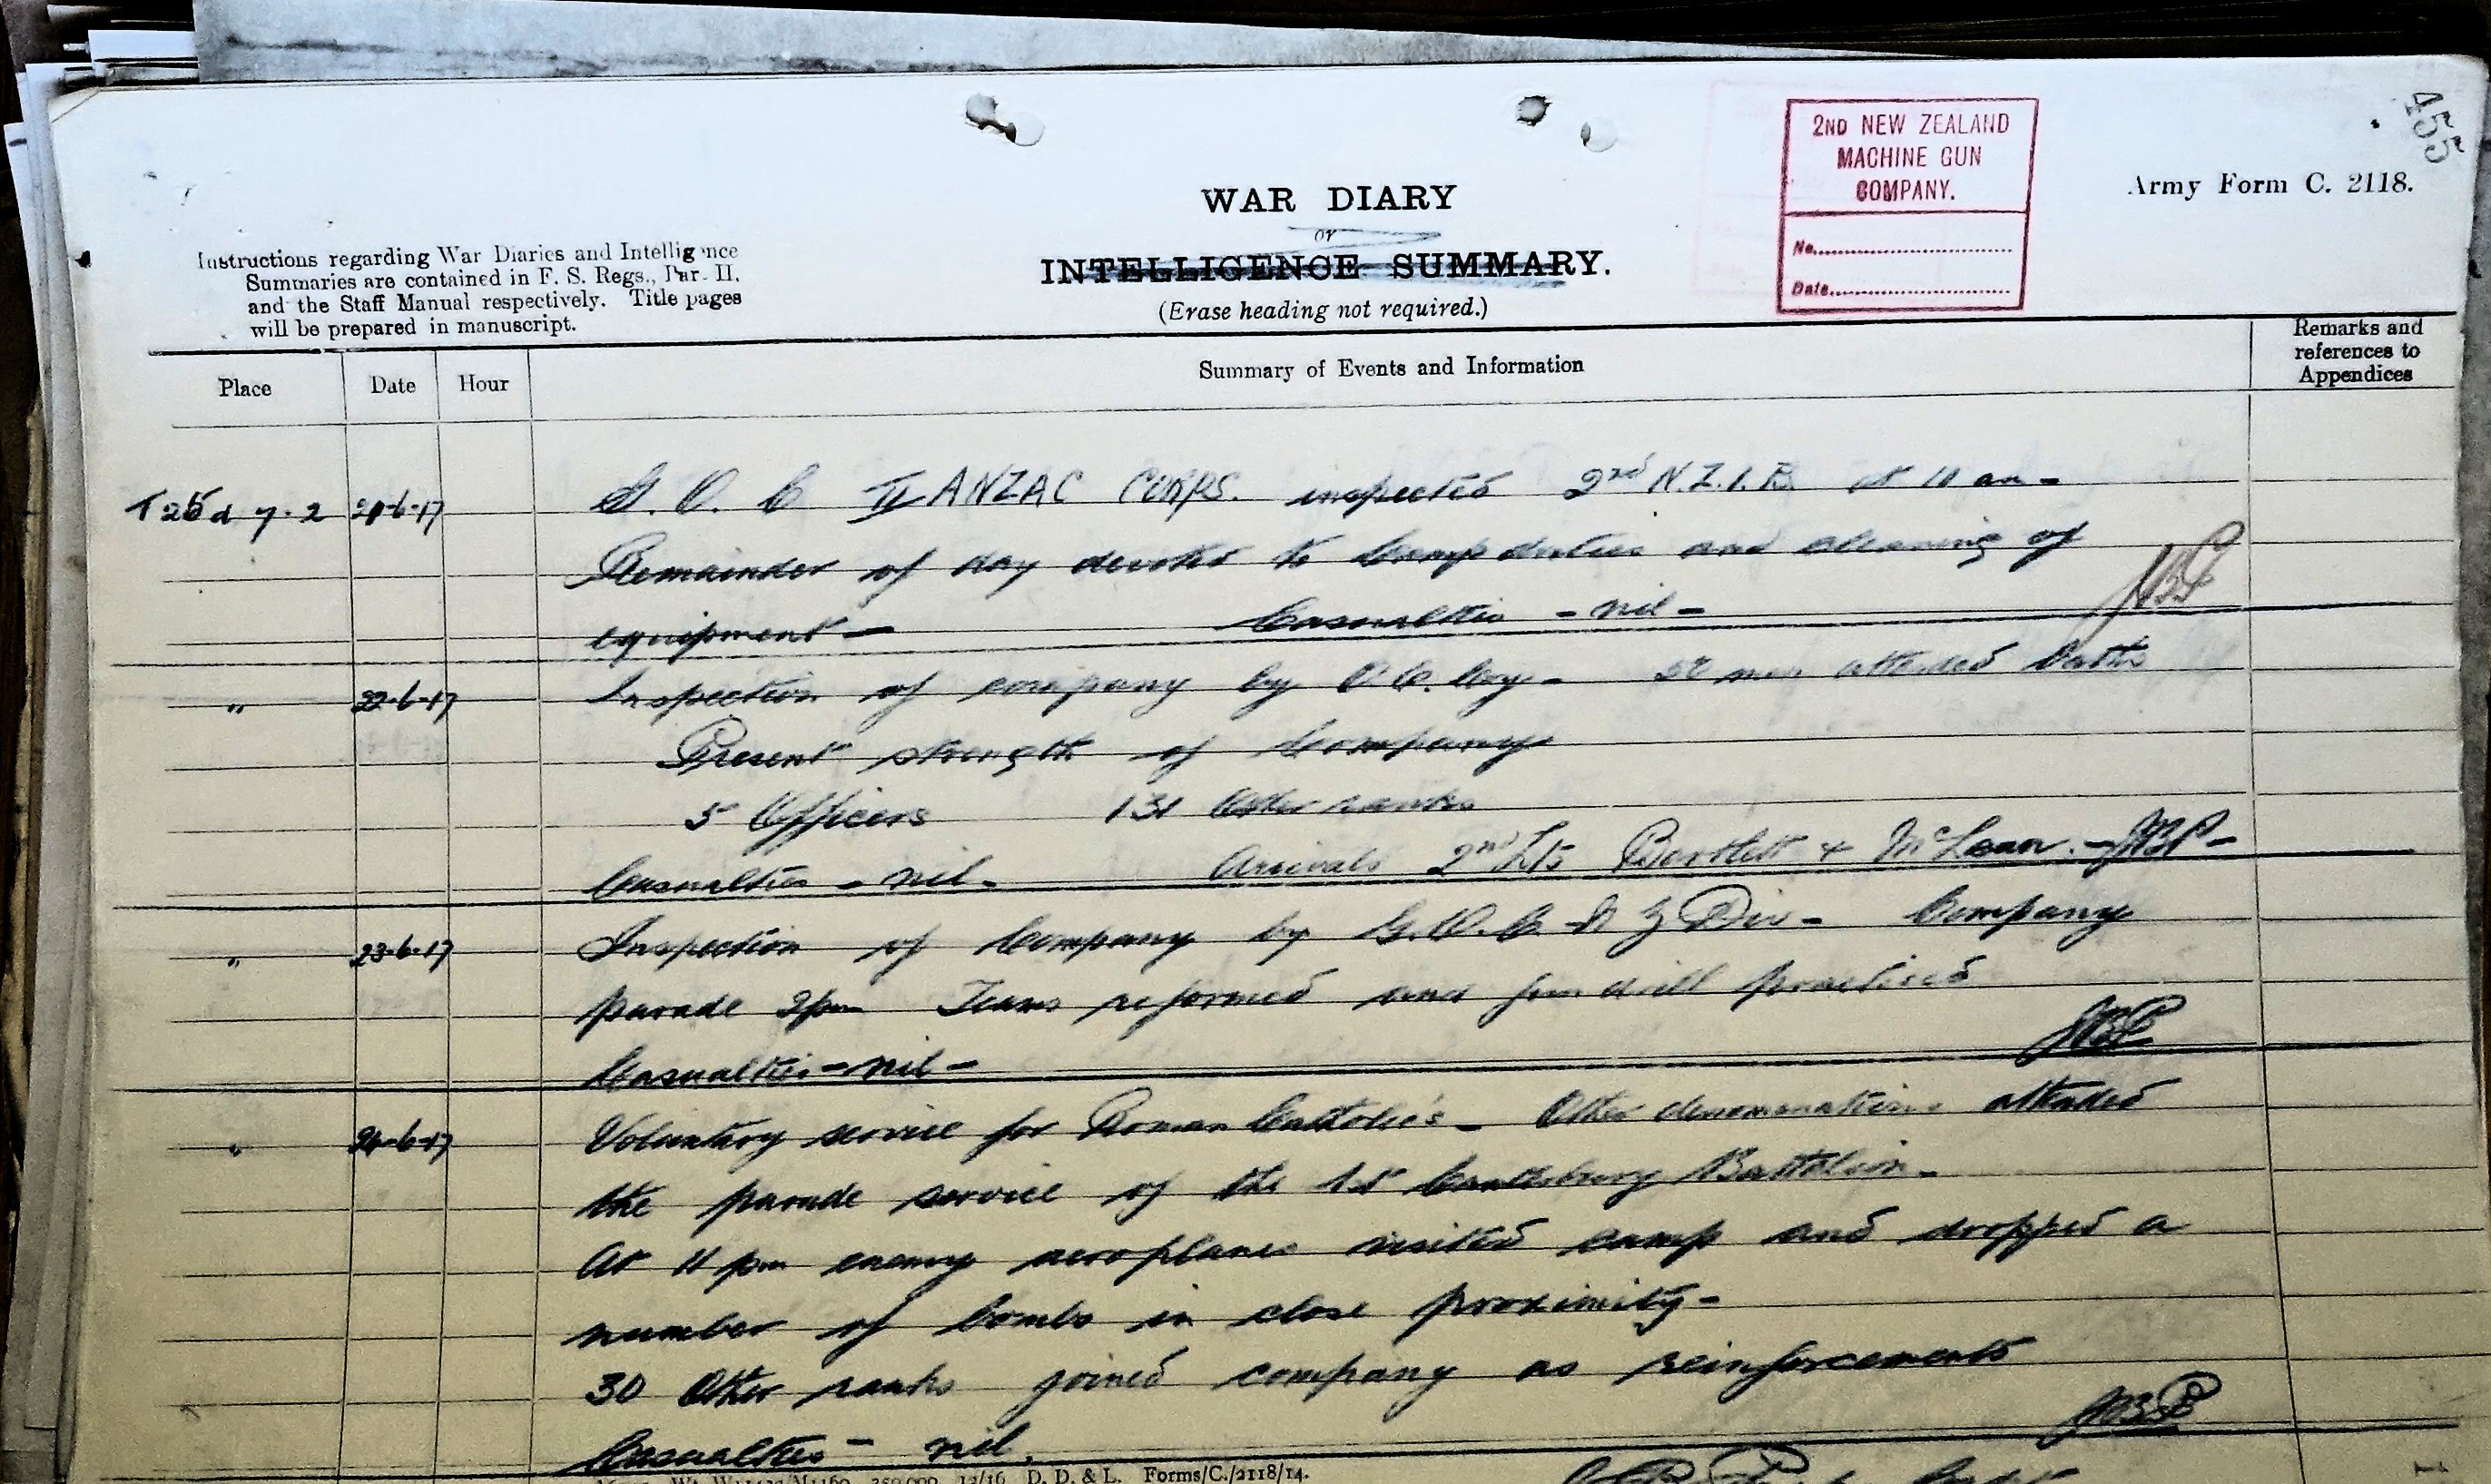 455
2ND NEW ZEALAND
MACHINE GUN
COMPANY.
No.
Date
Army Form C. 2118.
WAR DIARY
or
INTELLIGENCE SUMMARY.
(Erase heading not required.)
Instructions regarding War Diaries and Intelligence
Summaries are contained in F. S. Regs., Par. II,
and the Staff Manual respectively. Title pages
will be prepared in manuscript.
Place Date Hour Summary of Events and Information Remarks and
references to
Appendices
T 25 d 7.2 21-6-17 G. O. C II ANZAC CORPS. inspected 2nd N.Z.I.B. at 10 am -
Remainder of day devoted to Camp duties and cleaning of
equipment - Casualties - nil -
" 22-6-17 Inspection of company by O.C. Coy - men attended baths
Present strength of Company
5 Officers 131 Other ranks
Casualties - nil - Arrivals 2nd Lts Bartlett & McLean. -
" 23-6-17 Inspection of Company by G.O.C. N Z Div - Company
parade 2pm Teams reformed and gun drill practiced
Casualties - nil -
" 24-6-17 Voluntary service for Roman Catholics - Other denominations attended
the parade service of the 1st Canterbury Battalion -
At 11 pm enemy aeroplanes visited camp and dropped a
number of bombs in close proximity -
30 Other ranks joined company as reinforcements
Casualties - nil.
D. D. & L. Forms/C./2118/14.